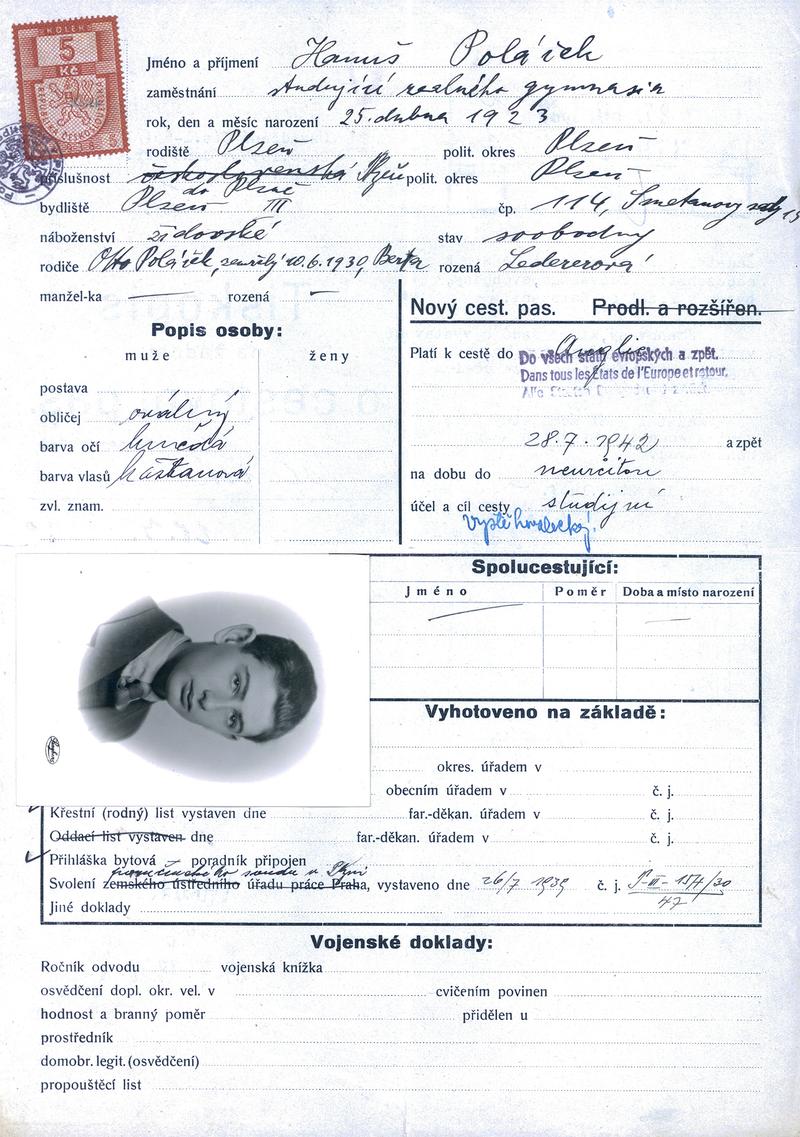 KOLEK
5
Kč
Jméno a příjmení Hanuš Poláček
zaměstnání studující reálného gymnasia
rok, den a měsíc narození 25. dubna 1923
rodiště Plzeň polit. okres Plzeň
příslušnost československá Plzeň polit. okres Plzeň
do Plzně
bydliště Plzeň III čp. 114, Smetanovy sady 13
náboženství židovské stav svobodný
rodiče Otto Poláček, zemřelý 10.6.1930, Berta rozená Ledererová
manžel-ka — rozená —
Nový cest. pas. Prodl. a rozšířen.
Popis osoby:
muže ženy
Platí k cestě do Anglie
Do všech států evropských a zpět.
Dans tous les États de l'Europe et retour.
postava
obličej oválný
barva očí hnědá
28.7.1942 a zpět
barva vlasů kaštanová
na dobu do neurčitou
zvl. znam.
účel a cíl cesty studijní
Vystěhovalecký!
Spolucestující:
Jméno Poměr Doba a místo narození
Vyhotoveno na základě:
okres. úřadem v
obecním úřadem v č. j.
Křestní (rodný) list vystaven dne far.-děkan. úřadem v č. j.
Oddací list vystaven dne far.-děkan. úřadem v č. j.
Přihláška bytová poradník připojen
poručenského soudu v Plzni
Svolení zemského ústředního úřadu práce Praha, vystaveno dne 26/7 1939 č. j. P-III-154/30
47
Jiné doklady
Vojenské doklady:
Ročník odvodu vojenská knížka
osvědčení dopl. okr. vel. v cvičením povinen
hodnost a branný poměr přidělen u
prostředník
domobr. legit. (osvědčení)
propouštěcí list